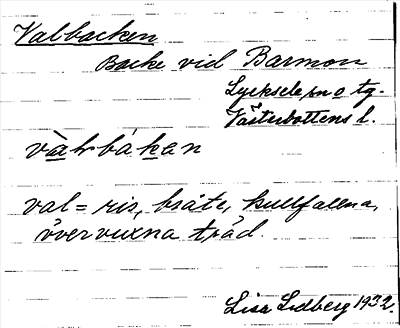 Valbacken
Backe vid Barmon
Lycksele sn o tg.
Västerbottens l.
val = ris, bråte, kullfallna,
övervuxna träd.
Lisa Lidberg 1932.